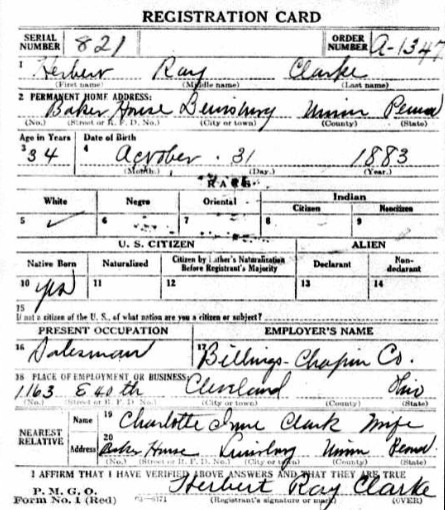 REGISTRATION CARD
SERIAL NUMBER 821 ORDER NUMBER A-1347
1 Herbert Ray Clarke
(First name) (Middle name) (Last name)
2 PERMANENT HOME ADDRESS:
Baker House Lewisburg Union Penna
(No.) (Street or R. F. D. No.) (City or town) (County) (State)
Age in Years Date of Birth
3 34 4 October 31 1883
(Month.) (Day.) (Year.)
RACE
White Negro Oriental Indian
Citizen Noncitizen
5 ✓ 6 7 8 9
U. S. CITIZEN ALIEN
Native Born Naturalized Citizen by Father's Naturalization Before Registrant's Majority Declarant Non-declarant
10 yes 11 12 13 14
15
If not a citizen of the U. S., of what nation are you a citizen or subject?
PRESENT OCCUPATION EMPLOYER'S NAME
16 Salesman 17 Billings-Chapin Co.
18 PLACE OF EMPLOYMENT OR BUSINESS:
1163 E 40th Cleveland Ohio
(No.) (Street or R. F. D. No.) (City or town) (County) (State)
NEAREST RELATIVE Name 19 Charlotte Clark Wife
Address 20 Baker House Lewisburg Union Penna
(No.) (Street or R. F. D. No.) (City or town) (County) (State)
I AFFIRM THAT I HAVE VERIFIED ABOVE ANSWERS AND THAT THEY ARE TRUE
P. M. G. O.
Form No. 1 (Red) Herbert Ray Clarke
(Registrant's signature or mark) (OVER)